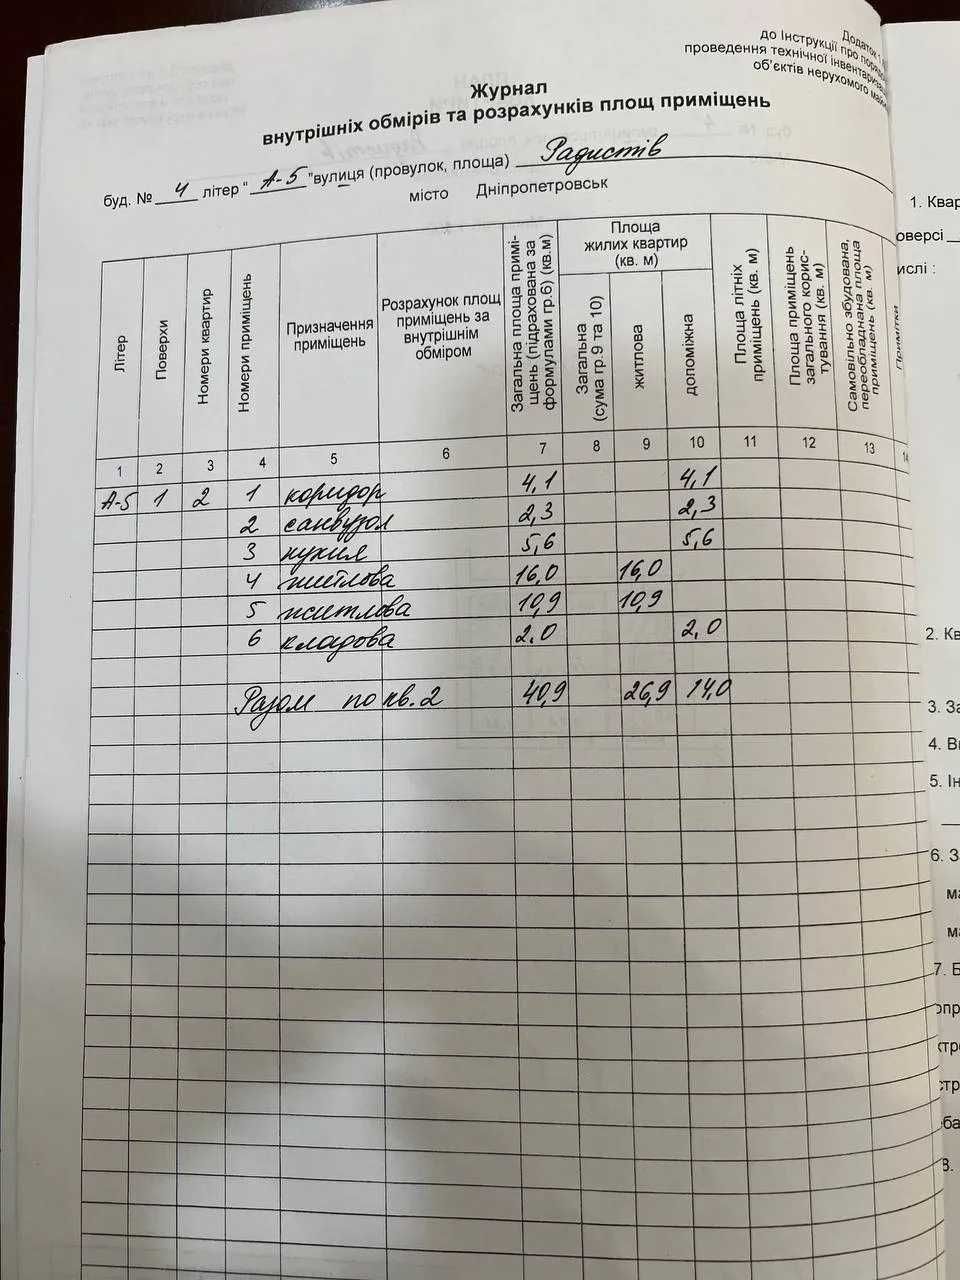 Додаток 1
до Інструкції про порядок
проведення технічної інвентариза
об'єктів нерухомого майна
Журнал
внутрішніх обмірів та розрахунків площ приміщень
буд. № 4 літер " А-5 "вулиця (провулок, площа) Радистів
місто Дніпропетровськ
Літер
Поверхи
Номери квартир
Номери приміщень
Призначення приміщень
Розрахунок площ приміщень за внутрішнім обміром
Загальна площа приміщень (підрахована за формулами гр.6) (кв.м)
Площа жилих квартир (кв. м)
Загальна (сума гр.9 та 10)
житлова
допоміжна
Площа літніх приміщень (кв. м)
Площа приміщень загального користування (кв. м)
Самовільно збудована, переобладнана площа приміщень (кв. м)
Примітки
1 2 3 4 5 6 7 8 9 10 11 12 13 14
А-5 1 2 1 коридор 4,1 4,1
2 санвузол 2,3 2,3
3 кухня 5,6 5,6
4 житлова 16,0 16,0
5 житлова 10,9 10,9
6 кладова 2,0 2,0
Разом по кв. 2 40,9 26,9 14,0
1. Квар
оверсі
ислі :
2. Кв
3. За
4. Ви
5. Ін
6. З
ма
ма
7. Б
опр
ктро
стр
ба
8.